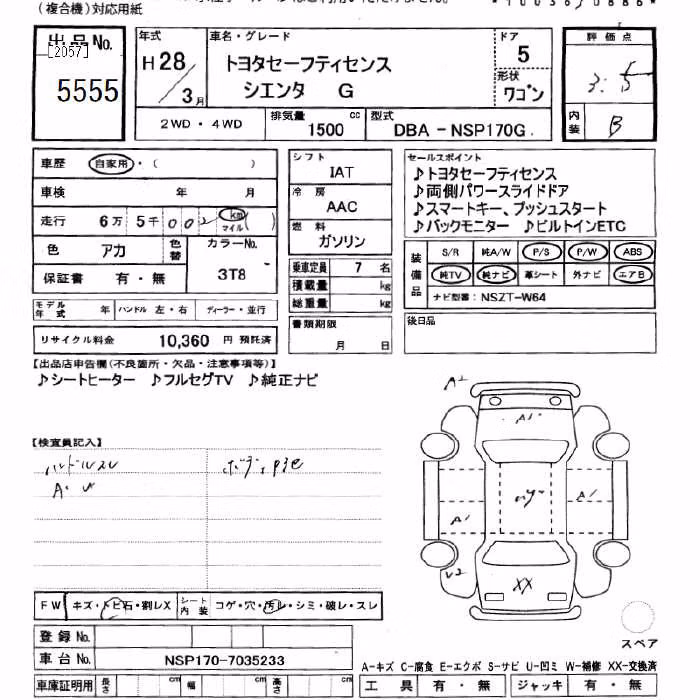 (複合機)対応用紙
出品No.
[2057]
5555
年式
H28/3月
車名・グレード
トヨタセーフティセンス
シエンタ G
ドア
5
形状
ワゴン
評価点
3.5
内装
B
2WD・4WD
排気量
1500 cc
型式
DBA-NSP170G
車歴 自家用・( )
車検 年 月
走行 6万 5千 002 km マイル ( )
色 アカ 色替
カラーNo.
3T8
保証書 有・無
モデル年式 年 ハンドル 左・右 ディーラー・並行
リサイクル料金 10,360 円 預託済
シフト
IAT
冷房
AAC
燃料
ガソリン
乗車定員 7 名
積載量 kg
総重量 kg
書類期限
月 日
セールスポイント
♪トヨタセーフティセンス
♪両側パワースライドドア
♪スマートキー、プッシュスタート
♪バックモニター ♪ビルトインETC
装備品
S/R 純A/W P/S P/W ABS
純TV 純ナビ 革シート 外ナビ エアB
ナビ型番: NSZT-W64
後日品
【出品店申告欄(不良箇所・欠品・注意事項等)】
♪シートヒーター ♪フルセグTV ♪純正ナビ
【検査員記入】
ハンドルスレ
A2
A1
A1
A1
XX
FW キズ・トビ石・割レX シート内装 コゲ・穴・汚レ・シミ・破レ・スレ
登録No.
車台No. NSP170-7035233
車庫証明用 長さ cm 幅 cm 高さ cm
スペア
A-キズ C-腐食 E-エクボ S-サビ U-凹ミ W-補修 XX-交換済
工具 有・無 ジャッキ 有・無